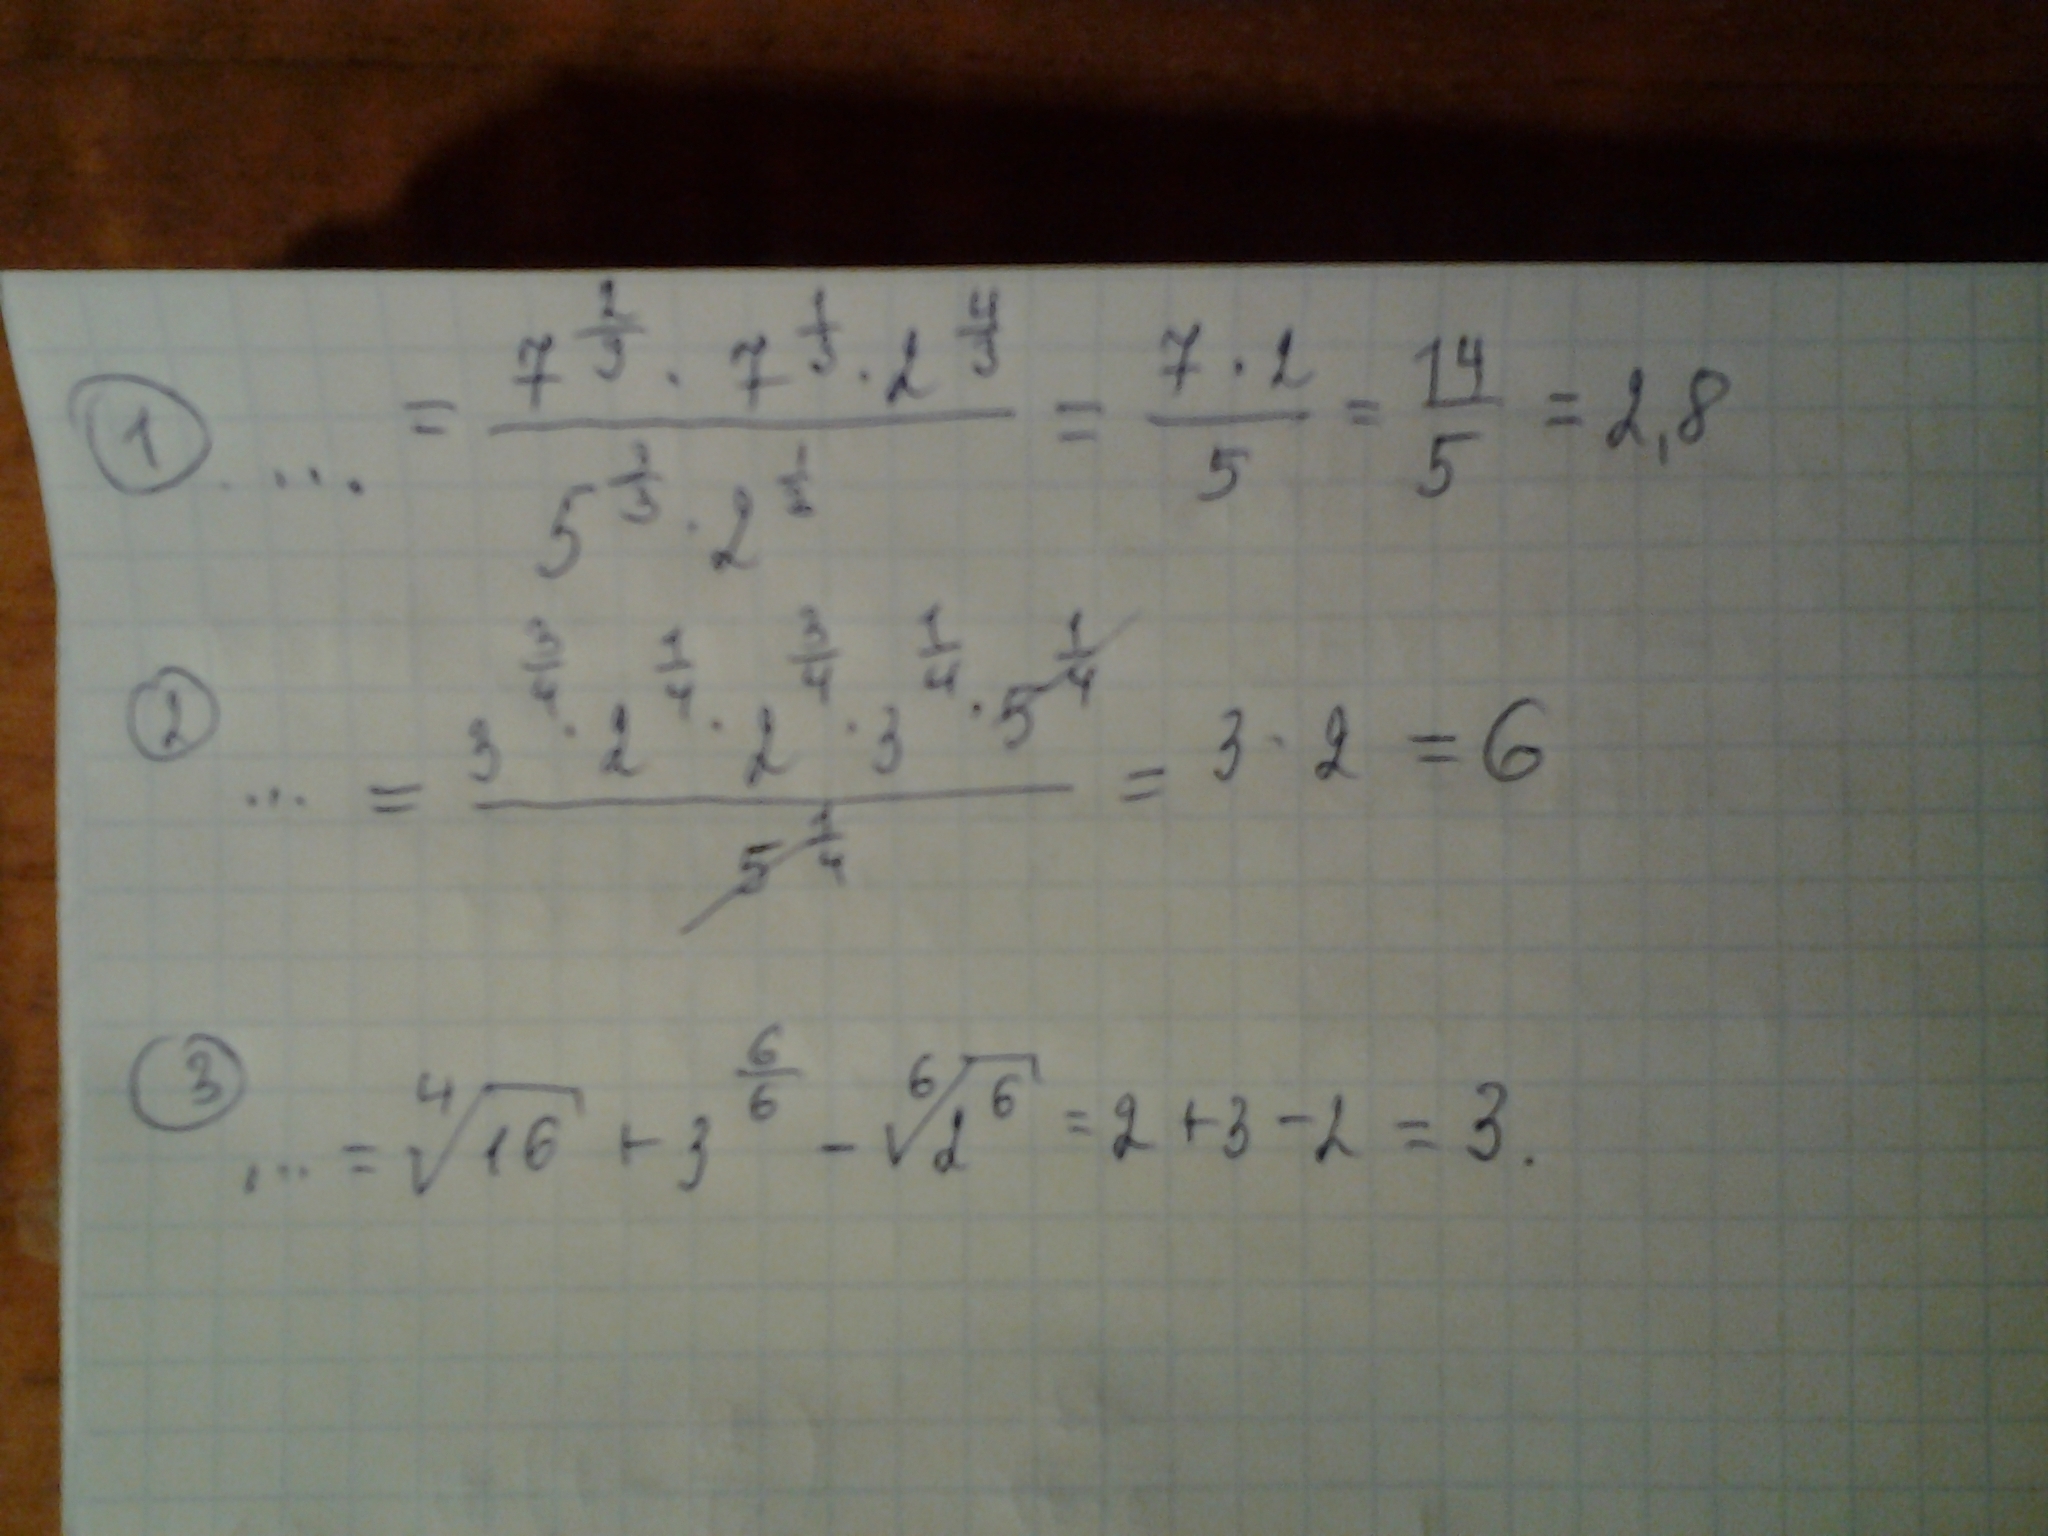 ① .... = (7^(2/3) · 7^(1/3) · 2^(4/3)) / (5^(3/3) · 2^(1/3)) = (7 · 2) / 5 = 14/5 = 2,8
② ... = (3^(3/4) · 2^(1/4) · 2^(3/4) · 3^(1/4) · 5^(1/4)) / 5^(1/4) = 3 · 2 = 6
③ ... = ⁴√16 + 3^(6/6) − ⁶√(2^6) = 2 + 3 − 2 = 3.